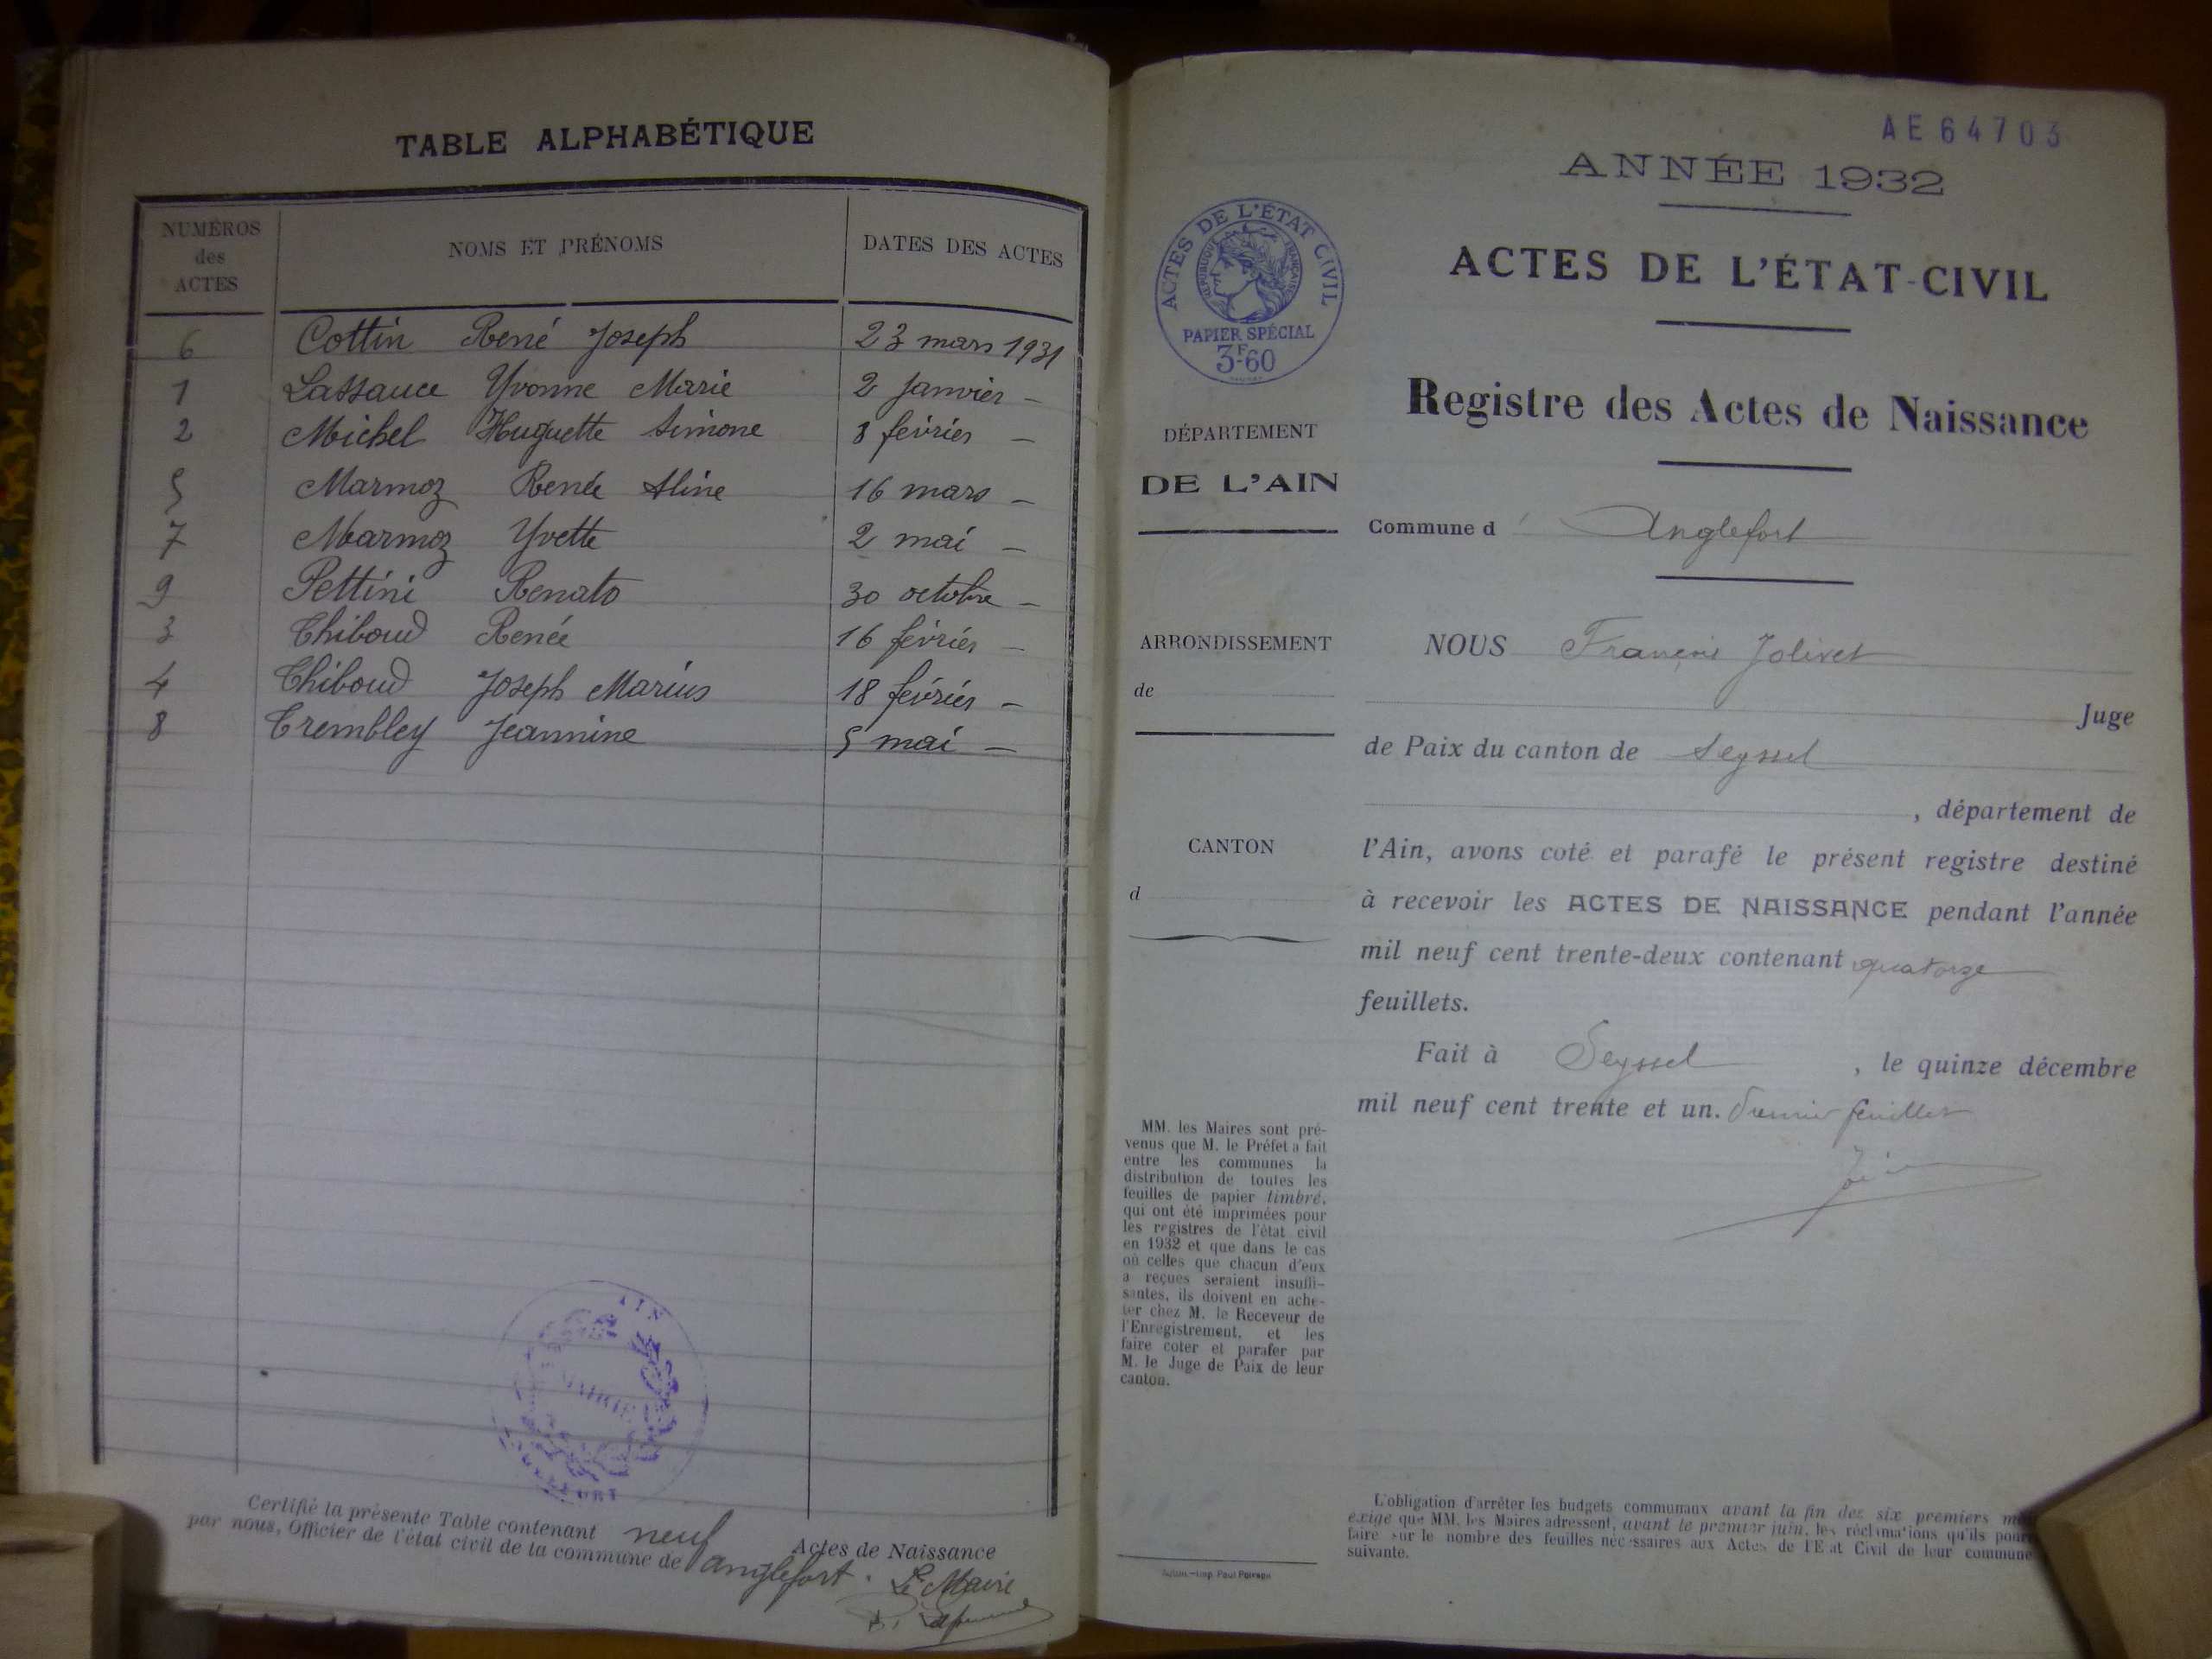 TABLE ALPHABÉTIQUE
NUMÉROS des ACTES NOMS ET PRÉNOMS DATES DES ACTES
6 Cottin René Joseph 23 mars 1931
1 Lassauce Yvonne Marie 2 Janvier —
2 Michel Huguette Simone 8 février —
5 Marmoz Renée Aline 16 mars —
7 Marmoz Yvette 2 mai —
9 Pettini Renato 30 octobre —
3 Thiboud Renée 16 février —
4 Thiboud Joseph Marius 18 février —
8 Trembley Jeannine 5 mai —
AIN
MAIRIE
Certifié la présente Table contenant neuf Actes de Naissance
par nous, Officier de l'état civil de la commune de Anglefort.
Le Maire
AE64703
ANNÉE 1932
ACTES DE L'ÉTAT CIVIL
RÉPUBLIQUE FRANÇAISE
PAPIER SPÉCIAL
3F60
ACTES DE L'ÉTAT-CIVIL
Registre des Actes de Naissance
DÉPARTEMENT
DE L'AIN
Commune d' Anglefort
ARRONDISSEMENT
de
NOUS François Jolivet
Juge
de Paix du canton de Seyssel
, département de
CANTON
d
l'Ain, avons coté et parafé le présent registre destiné
à recevoir les ACTES DE NAISSANCE pendant l'année
mil neuf cent trente-deux contenant quatorze
feuillets.
Fait à Seyssel, le quinze décembre
mil neuf cent trente et un. Premier feuillet
MM. les Maires sont pré-
venus que M. le Préfet a fait
entre les communes la
distribution de toutes les
feuilles de papier timbré,
qui ont été imprimées pour
les registres de l'état civil
en 1932 et que dans le cas
où celles que chacun d'eux
a reçues seraient insuffi-
santes, ils doivent en ache-
ter chez M. le Receveur de
l'Enregistrement, et les
faire coter et parafer par
M. le Juge de Paix de leur
canton.
L'obligation d'arrêter les budgets communaux avant la fin des six premiers
exige que MM. les Maires adressent, avant le premier juin, les réclamations qu'ils
faire sur le nombre des feuilles nécessaires aux Actes de l'Etat Civil de leur commune
suivante.